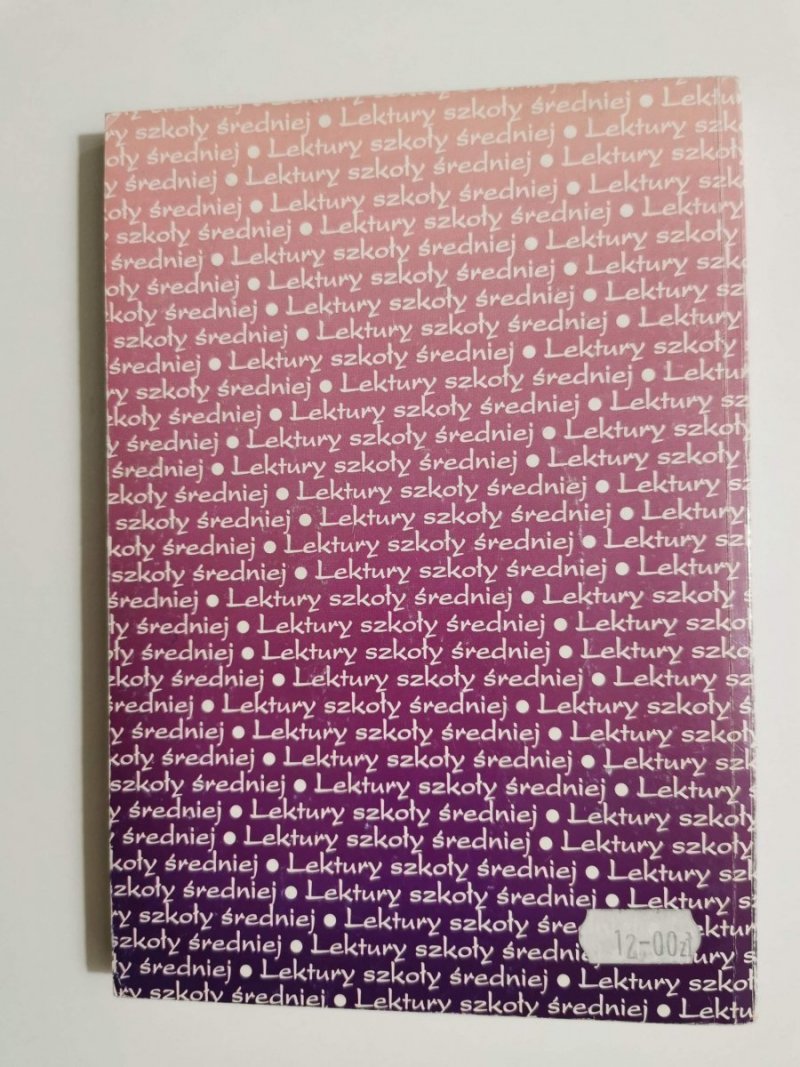 szkoły średniej • Lektury szkoły średniej • Lektu
średniej • Lektury szkoły średniej • Lektury
średniej • Lektury szkoły średniej • Lektury
średniej • Lektury szkoły średniej • Lektury
szkoły średniej • Lektury szkoły średniej • Lektury
średniej • Lektury szkoły średniej • Lektury
średniej • Lektury szkoły średniej • Lektury
średniej • Lektury szkoły średniej • Lektury
szkoły średniej • Lektury szkoły średniej • Lektury
średniej • Lektury szkoły średniej • Lektury szkoły
szkoły średniej • Lektury szkoły średniej • Lektu
średniej • Lektury szkoły średniej • Lektury
średniej • Lektury szkoły średniej • Lektury szkoły
średniej • Lektury szkoły średniej • Lektury
średniej • Lektury szkoły średniej • Lektury
szkoły średniej • Lektury szkoły średniej • Lektury
średniej • Lektury szkoły średniej • Lektury
szkoły średniej • Lektury szkoły średniej • Lektury
średniej • Lektury szkoły średniej • Lektury
średniej • Lektury szkoły średniej • Lektury
średniej • Lektury szkoły średniej • Lektury
średniej • Lektury szkoły średniej • Lektury
średniej • Lektury szkoły średniej • Lektury szkoły
średniej • Lektury szkoły średniej • Lektury
średniej • Lektury szkoły średniej • Lektury
szkoły średniej • Lektury szkoły średniej • Lektury
średniej • Lektury szkoły średniej • Lektury
średniej • Lektury szkoły średniej • Lektury
średniej • Lektury szkoły średniej • Lektury
szkoły średniej • Lektury szkoły średniej • Lektury
szkoły średniej • Lektury szkoły śre
szkoły średniej • Lektury szkoły średniej
12-00zł
średniej • Lektury szkoły średniej • Lektury
szkoły średniej • Lektury szkoły średniej • Lektu